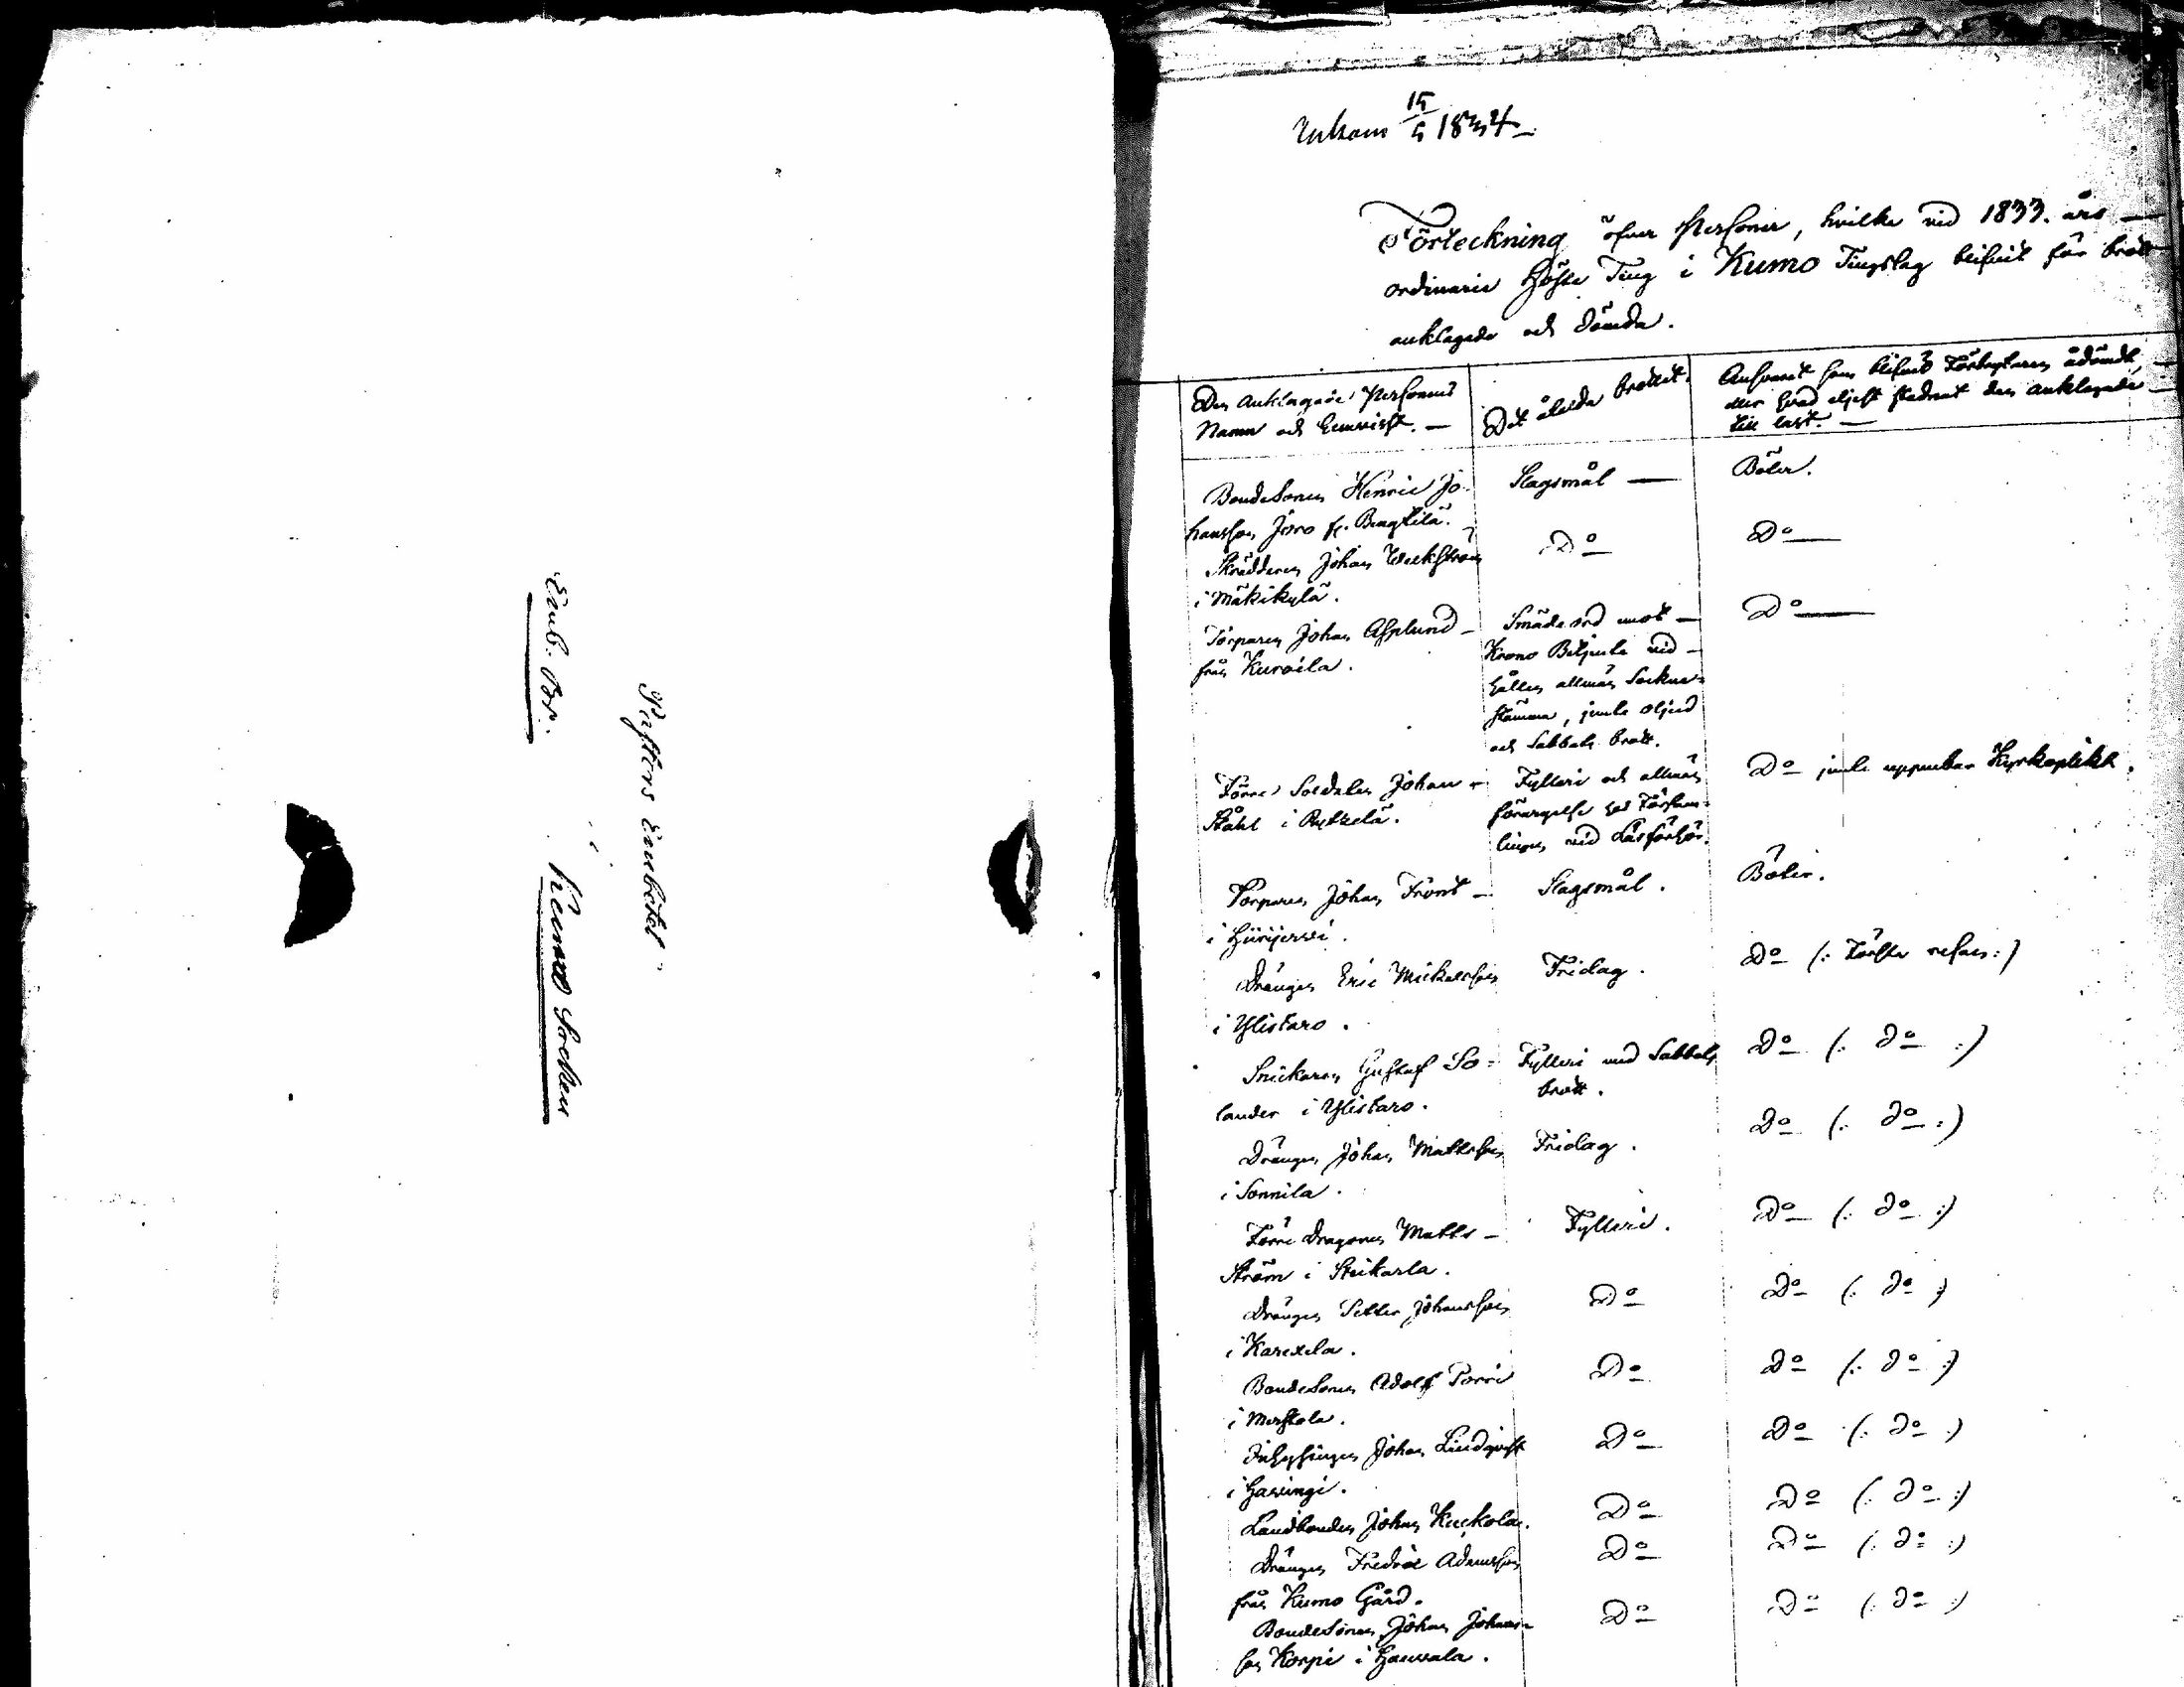 Pastors Embetet
Emb. Br.
Kumo Socken
Inkom 15/5 1834
Förteckning öfver Personer, hvilka vid 1833. års
ordinarie Höste Ting i Kumo Tingslag blifvit för brott
anklagade och dömda.
Den Anklagades Personens
Namn och hemvist.
Det åtalda brottet.
Ansvaret som blifvit Förbrytaren ådömdt,
eller hvad eljest stadnat den anklagade
till last.
BondeSonen Henric Jo-
hansson Joro fr. Bengtilä.
Slagsmål
Böter.
Skräddaren Johan Weckström
i Mäkikylä.
Do
Do
Torparen Johan Asplund
från Kuroila.
Smäde ord mot
Krono Betjente vid
hållen allmän Sockne-
stämma, jemte oljud
och Sabbats brott.
Do
Förre Soldaten Johan
Ståhl i
Fylleri och allmän
förargelse hos Försam-
lingen vid Läsförhör.
Do jemte uppenbar Kyrkoplikt.
Torparen Johan Front
i Hiirijervi.
Slagsmål.
Böter.
Drängen Eric Mickelsson
i Ylistaro.
Fridag.
Do (: Förster resan :)
Snickaren Gustaf So-
lander i Ylistaro.
Fylleri med Sabbats
brott.
Do (: do :)
Drängen Johan Mattsson
i Sonnila.
Fridag.
Do (: do :)
Förre Dragonen Matts
Ström i Steikarla.
Fylleri.
Do (: do :)
Drängen Johansson
i Karexela.
Do
Do (: do :)
BondeSonen Adolf Porri
i Merstola.
Do
Do (: do :)
Inhysingen Johan Lindqvist
i Havingi.
Do
Do (: do :)
Landbonden Johan Kuckola.
Do
Do (: do :)
Drängen Fredric Adamsson
från Kumo Gård.
Do
Do (: do :)
BondeSonen Johan Johans-
son Korpi i
Do
Do (: do :)